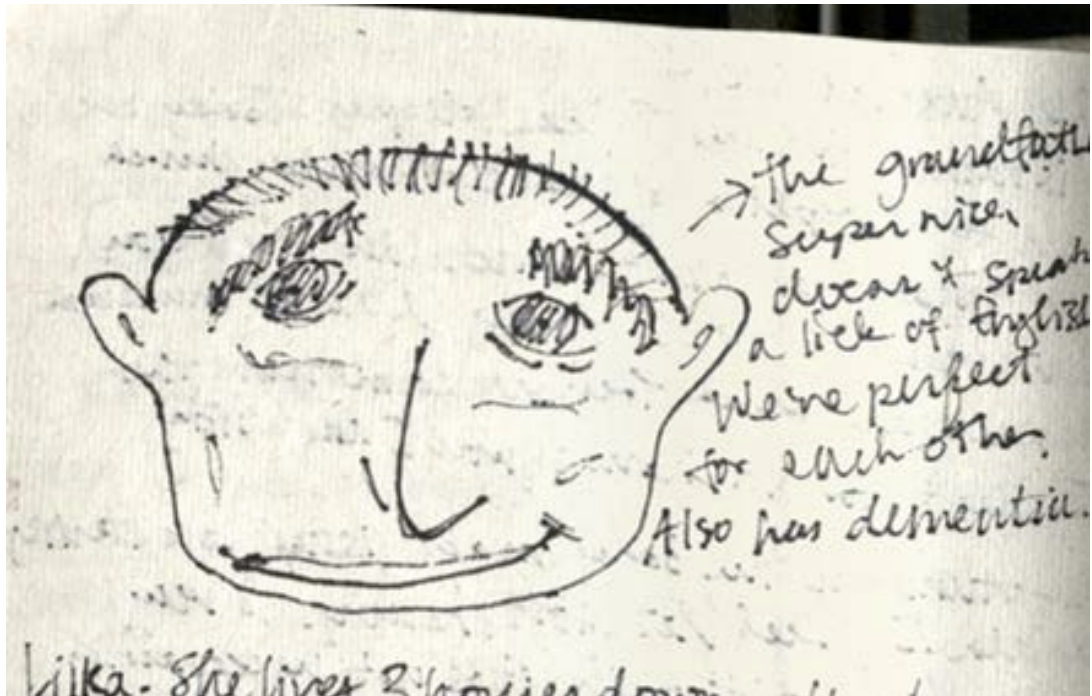 the grandfath
super nice,
doesn't speak
a lick of English
We're perfect
for each other.
Also has dementia.
Lilka. She lives 3 houses down